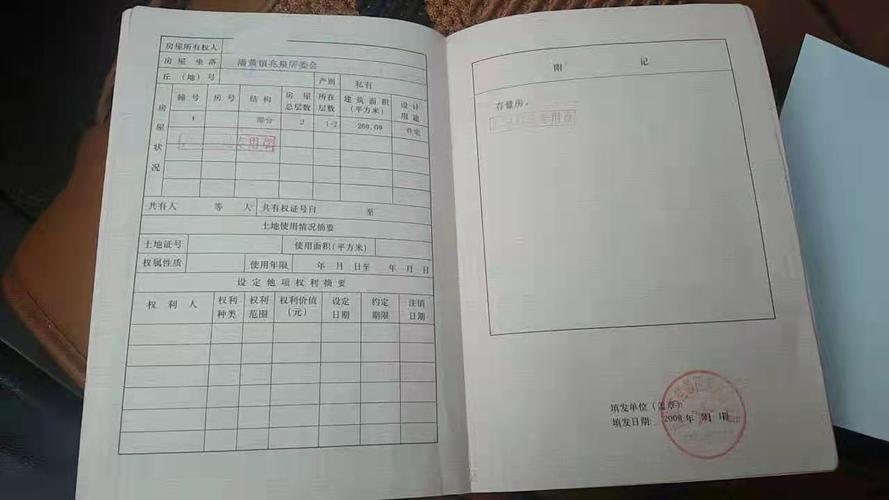 房屋所有权人
房屋坐落 潘黄镇兆泉居委会
丘（地）号 产别 私有
房屋状况
幢号 房号 结构 房屋总层数 所在层数 建筑面积（平方米） 设计用途
1 混合 2 1-2 269.09 住宅
专用章
共有人 等 人 共有权证号自 至
土地使用情况摘要
土地证号 使用面积(平方米)
权属性质 使用年限 年 月 日至 年 月 日
设定他项权利摘要
权利人 权利种类 权利范围 权利价值（元） 设定日期 约定期限 注销日期
附 记
存量房。
专用章
填发单位（盖章）
填发日期: 年 月 日